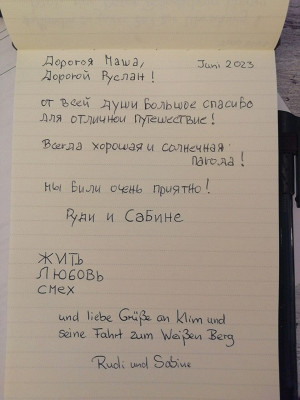 Дорогоя Маша,
Juni 2023
Дорогой Руслан!
от всей души большое спасибо
для отличнои путешествие!
Всегда хорошая и солнечная
пагода!
мы били очень приятно!
Руди и Сабине
ЖИТЬ
ЛЮБОВЬ
СМЕХ
und liebe Grüße an Klim und
seine Fahrt zum Weißen Berg
Rudi und Sabine